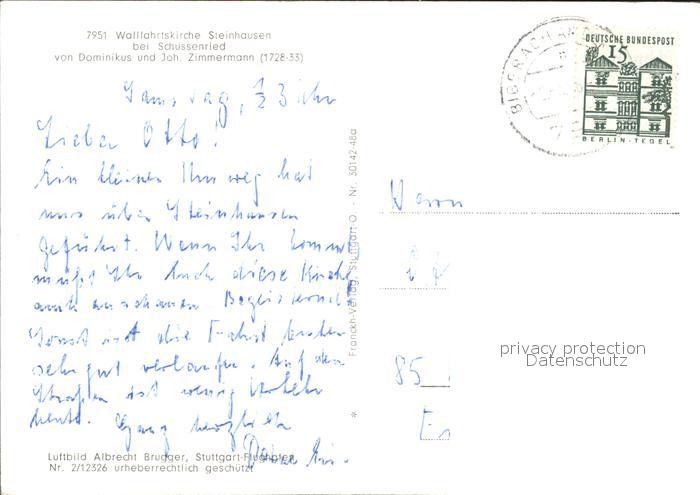 7951 Wallfahrtskirche Steinhausen
bei Schussenried
von Dominikus und Joh. Zimmermann (1728-33)
Samstag, ½ 3 Uhr
Lieber Otto!
Ein kleiner Umweg hat
uns über Steinhausen
geführt. Wenn Ihr kommt
müßt Ihr Euch diese Kirche
auch anschauen. Begeisternd!
Sonst ist die Fahrt bisher
sehr gut verlaufen. Auf den
Straßen ist wenig Verkehr
heute. Ganz herzlich
Luftbild Albrecht Brugger, Stuttgart-Flughafen
Nr. 2/12326 urheberrechtlich geschützt
Franckh-Verlag, Stuttgart-O. - Nr. 30142-48a
BIBERACH AN
DEUTSCHE BUNDESPOST
15
BERLIN-TEGEL
Herrn
85
privacy protection
Datenschutz